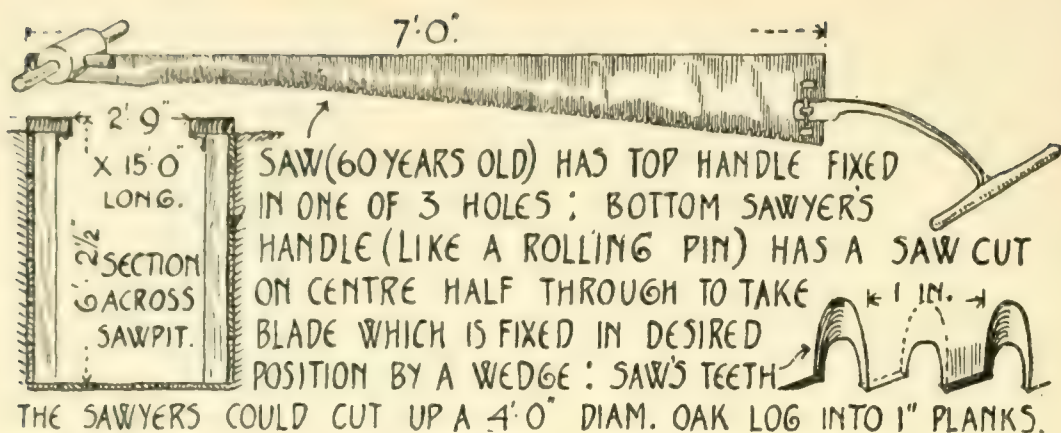 7'·0".
2'·9"
X 15'·0"
LONG.
6'·2½"
SECTION
ACROSS
SAWPIT.
SAW (60 YEARS OLD) HAS TOP HANDLE FIXED
IN ONE OF 3 HOLES : BOTTOM SAWYER'S
HANDLE (LIKE A ROLLING PIN) HAS A SAW CUT
ON CENTRE HALF THROUGH TO TAKE
BLADE WHICH IS FIXED IN DESIRED
POSITION BY A WEDGE : SAW'S TEETH
1 IN.
THE SAWYERS COULD CUT UP A 4'·0" DIAM. OAK LOG INTO 1" PLANKS.